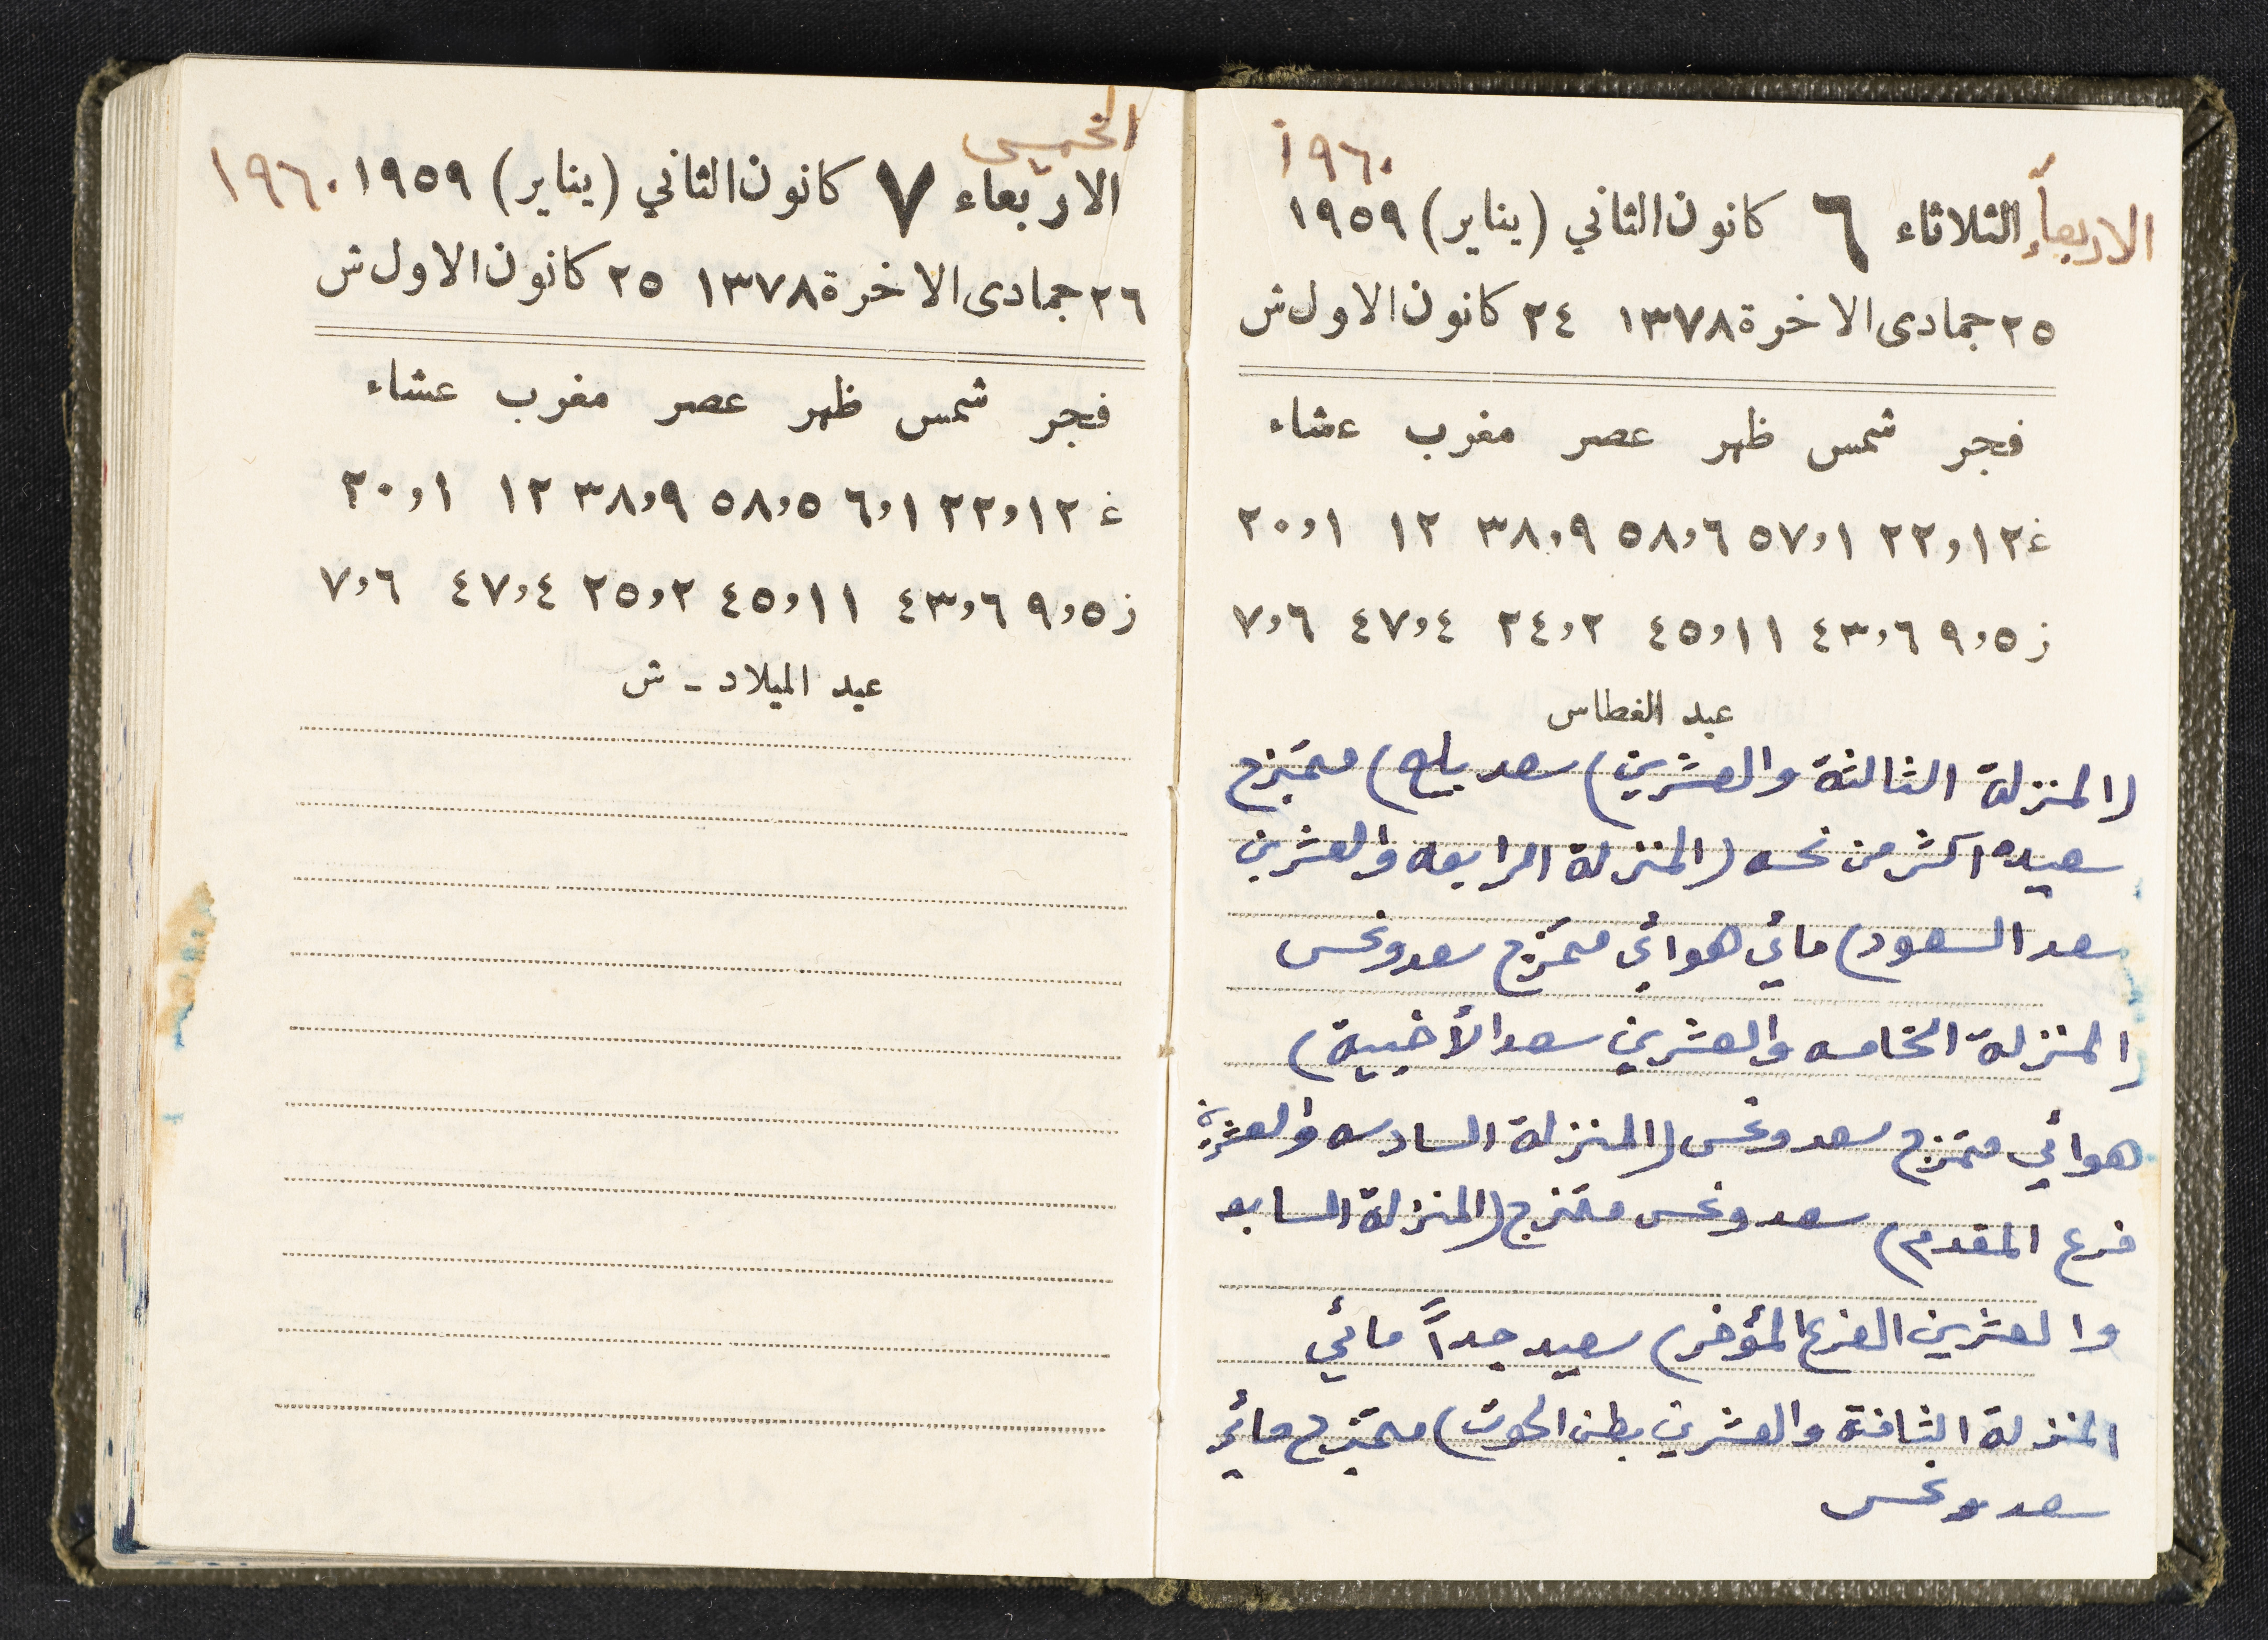 ١٩٦٠
الاربعاء الثلاثاء ٦ كانون الثاني (يناير) ١٩٥٩
٢٥ جمادى الاخرة ١٣٧٨ ٢٤ كانون الاول ش
فجر شمس ظهر عصر مغرب عشاء
غ ١٢,٢٢ ١,٥٧ ٦,٥٨ ٩,٣٨ ١٢ ١,٢٠
ز ٥,٩ ٦,٤٣ ١١,٤٥ ٢,٢٤ ٤,٤٧ ٦,٧
عيد الغطاس
(المنزلة الثالثة والعشرين) سعد بلع) ممتزج
سعيده اكثر من نحسه (المنزلة الرابعه والعشرين
سعد السعود) مائي هوائي ممتزج سعد ونحس
(المنزلة الخامسه والعشرين سعد الأخبية)
هوائي ممتزج سعد ونحس (المنزلة السادسه والعشرين
فرع المقدم) سعد ونحس ممتزج (المنزلة السابعه
والعشرين الفرع المؤخر) سعيد جداً مائي
المنزلة الثامنة والعشرين بطن الحوت) ممتزج مائي
سعد ونحس
الخميس
الاربعاء ٧ كانون الثاني (يناير) ١٩٥٩ ١٩٦٠
٢٦ جمادى الاخرة ١٣٧٨ ٢٥ كانون الاول ش
فجر شمس ظهر عصر مغرب عشاء
غ ١٢,٢٢ ١,٦ ٥,٥٨ ٩,٣٨ ١٢ ١,٢٠
ز ٥,٩ ٦,٤٣ ١١,٤٥ ٢,٢٥ ٤,٤٧ ٦,٧
عيد الميلاد - ش